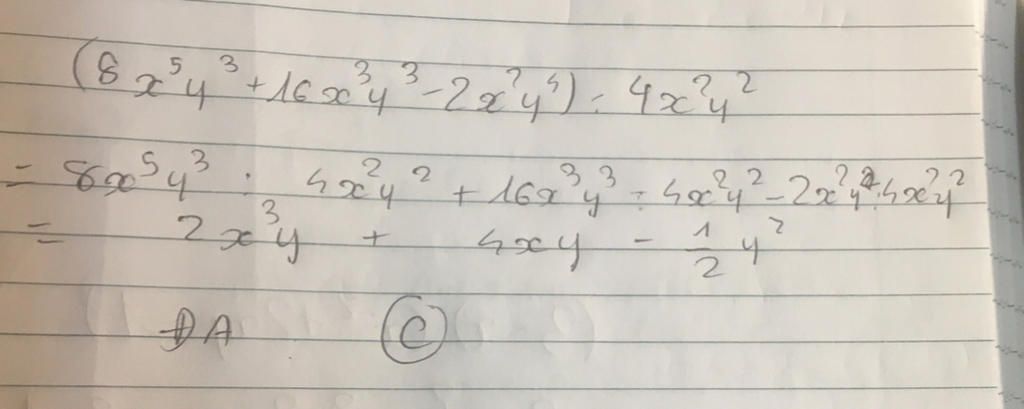 (8x⁵y³+16x³y³-2x²y⁴) : 4x²y²
= 8x⁵y³ : 4x²y² + 16x³y³ : 4x²y² - 2x²y⁴ : 4x²y²
= 2x³y + 4xy - 1/2 y²
ĐA C